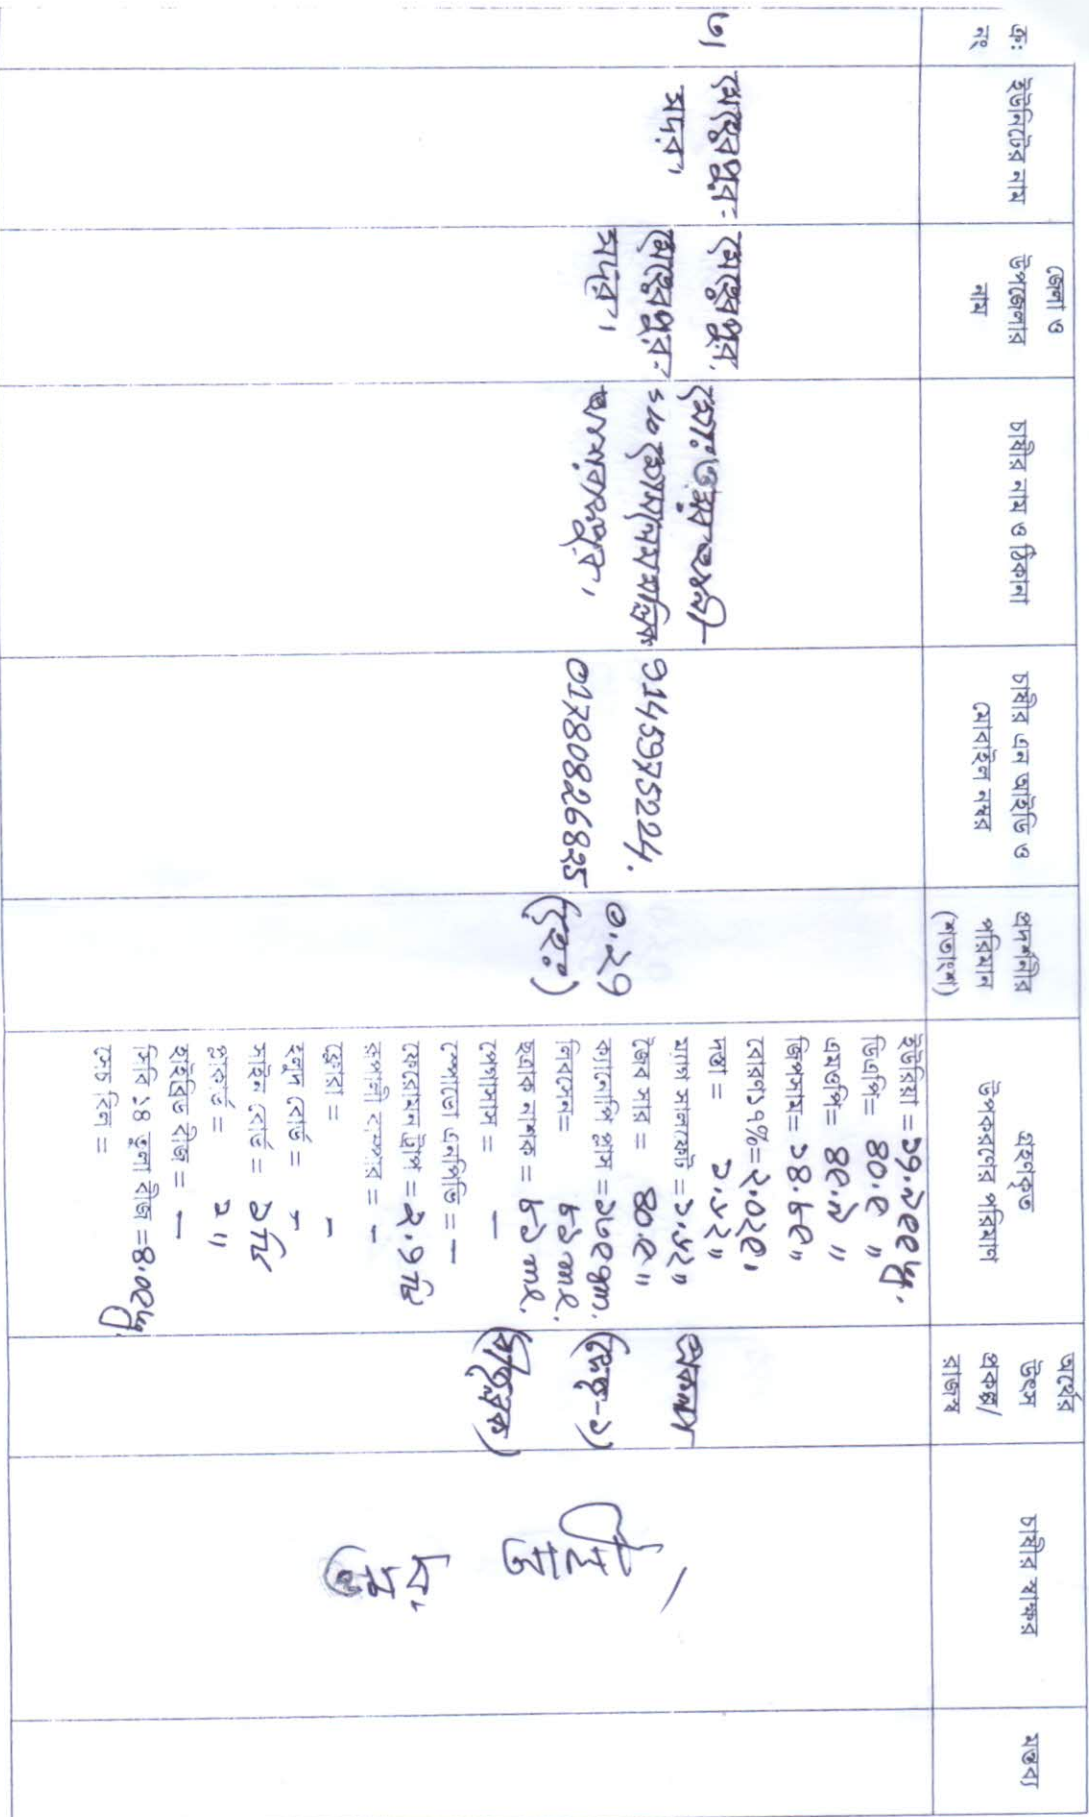 ক্র: নং
ইউনিটের নাম
জেলা ও উপজেলার নাম
চাষীর নাম ও ঠিকানা
চাষীর এন আইডি ও মোবাইল নম্বর
প্রদর্শনীর পরিমান (শতাংশ)
গ্রহণকৃত উপকরণের পরিমাণ
অর্থের উৎস প্রকল্প/ রাজস্ব
চাষীর স্বাক্ষর
মন্তব্য
৩।
মেহেরপুর-
সদর।
মেহেরপুর,
মেহেরপুর-
সদর।
মোঃ ওমর আলী
9145975224.
01780826825
০.২৭
(হেঃ)
ইউরিয়া =
ডিএপি= ৪০.৫ "
এমওপি= ৪৫.৯ "
জিপসাম= ১৪.৮৫ "
বোরণ১৭%= ২.০২৫ "
দস্তা = ১.৬২ "
ম্যাগ সালফেট = ১.৬২ "
জৈব সার = ৪০.৫ "
কানোপি প্লাস = ১৩৫ gm.
লিবসেন= ৮১ ml.
ছত্রাক নাশক = ৮১ ml.
পেগাসাস = —
স্পোডো এনপিভি = —
ফেরোমন ট্রাপ = ২.৭ টি
রুপালী র‍্যাপার = -
ট্রেরা = -
হলুদ বোর্ড = -
সাইন বোর্ড = ১টি
প্লাকার্ড = ১ "
হাইব্রিড বীজ = —
সিবি ১৪ তুলা বীজ =
সেচ বিল =
প্রকল্প
(ফেজ-১)